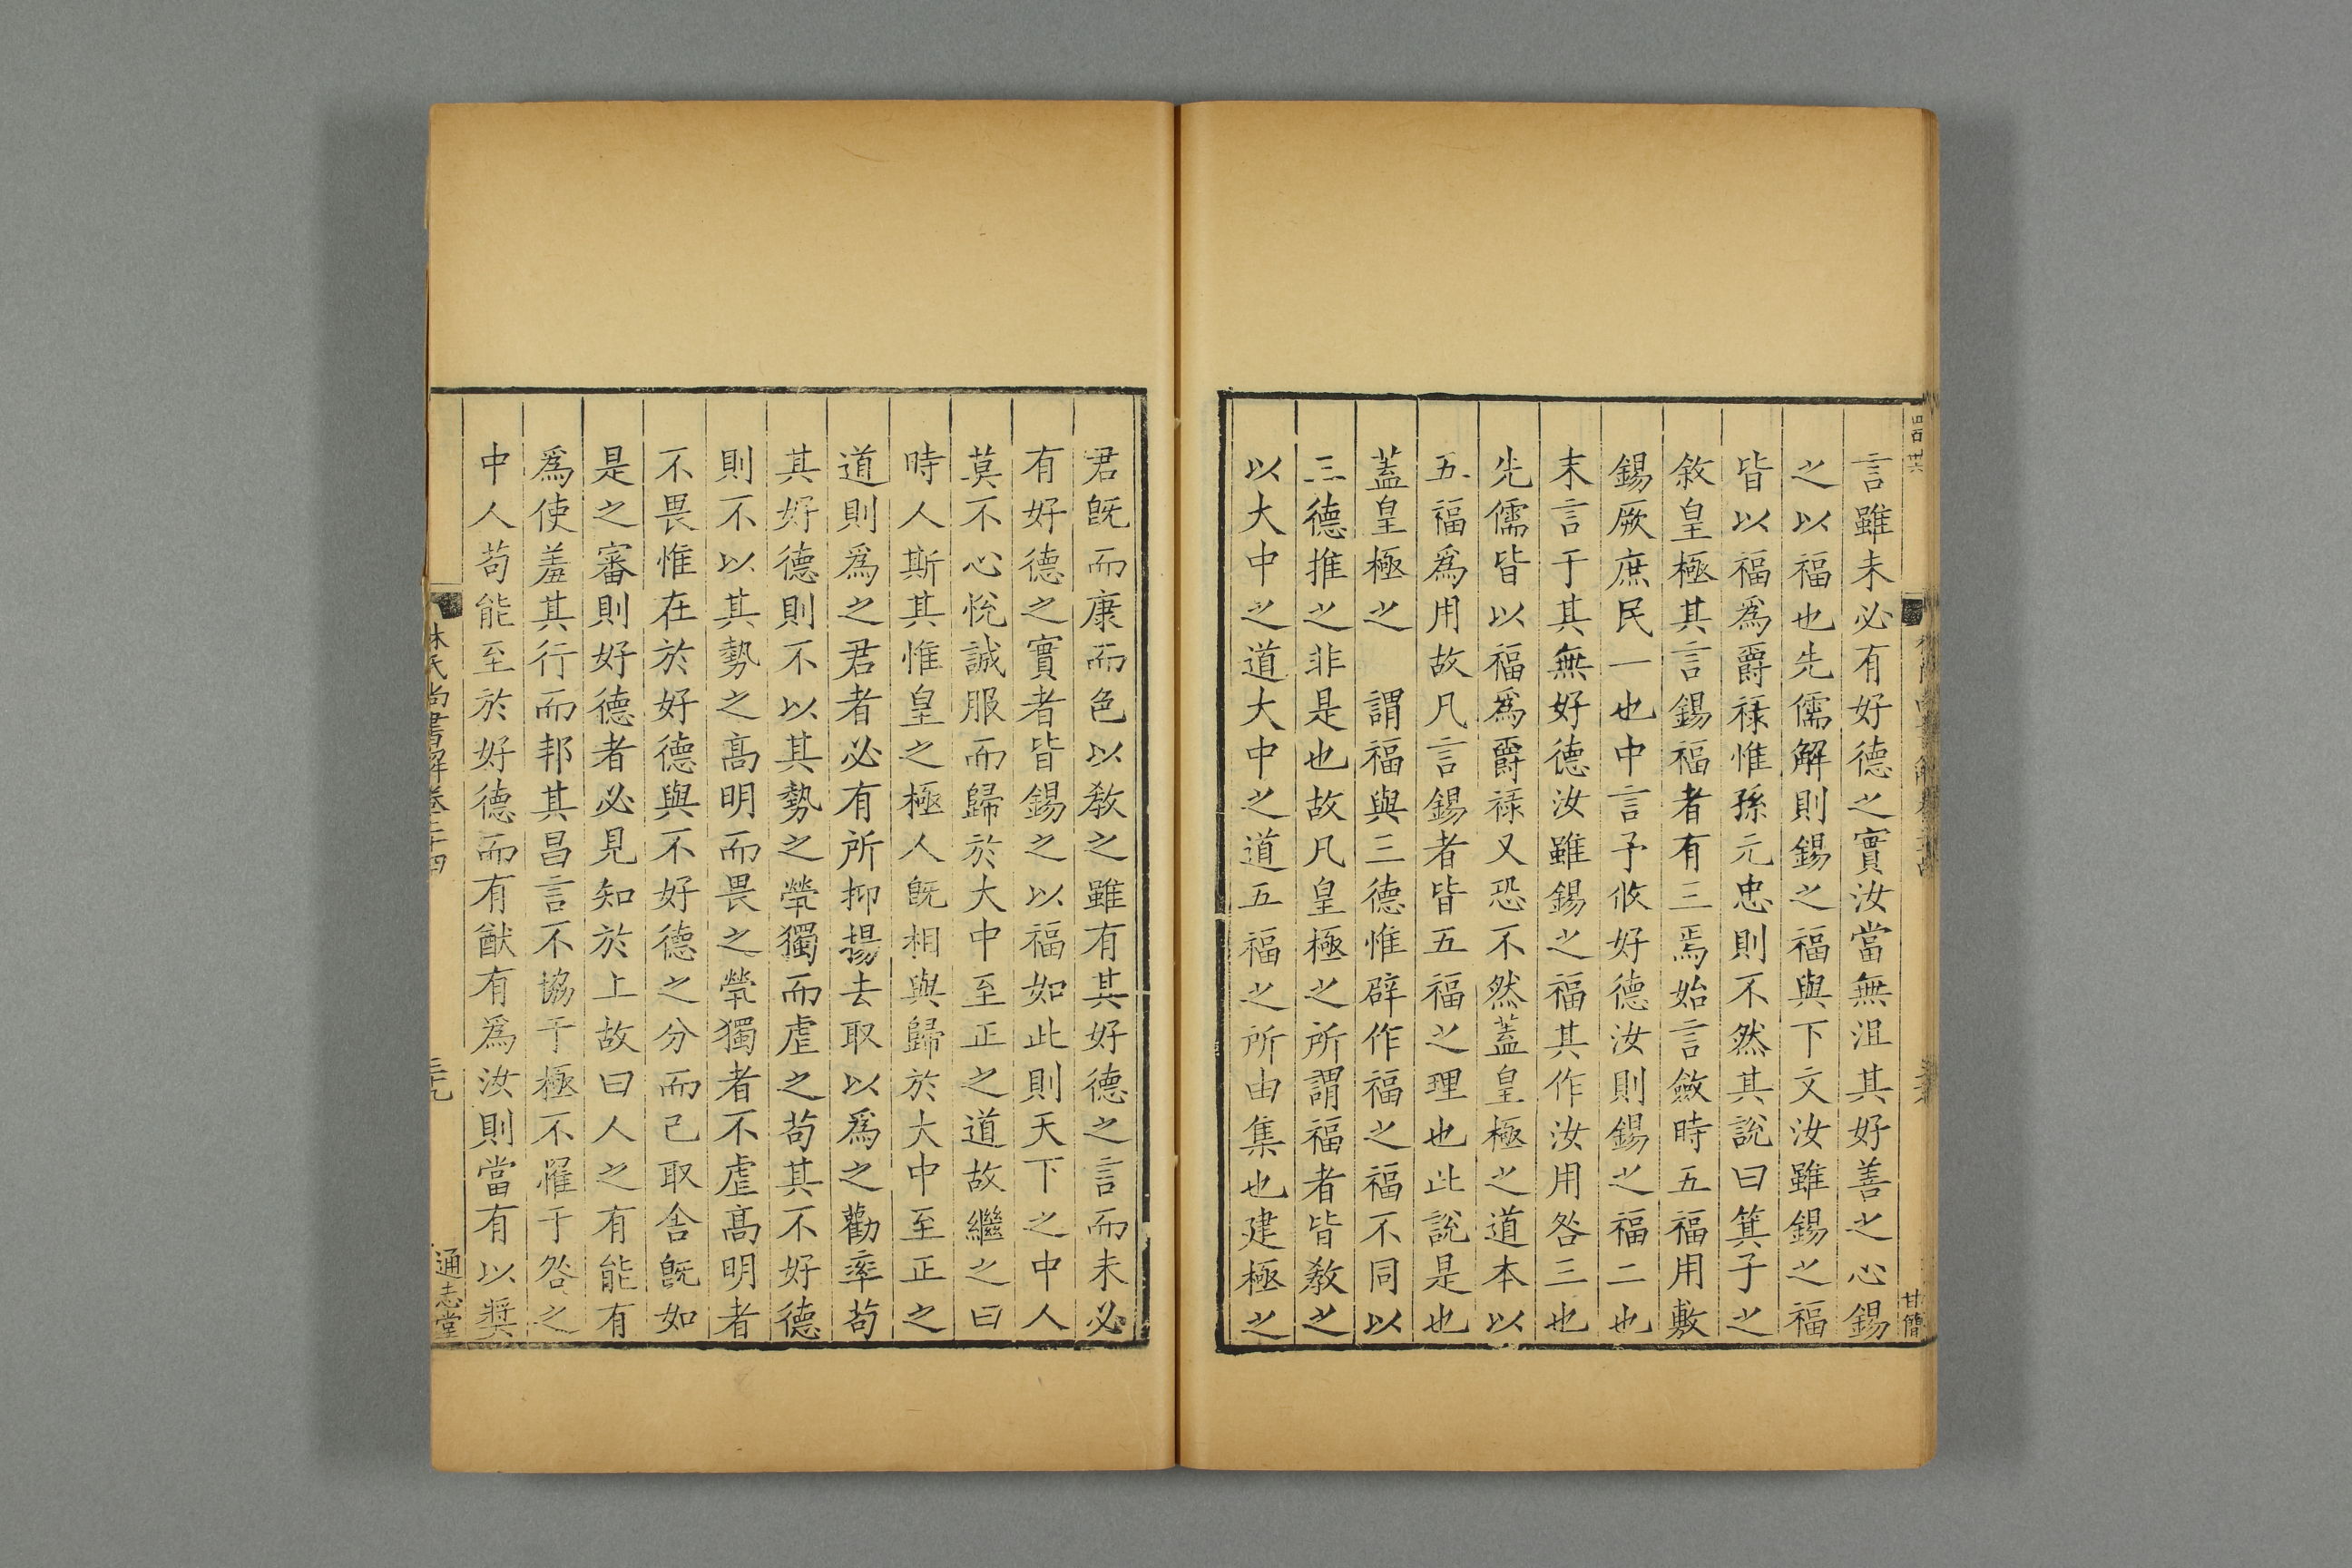 言雖未必有好德之實汝當無沮其好善之心錫
之以福也先儒解則錫之福與下文汝雖錫之福
皆以福爲爵祿惟孫元忠則不然其說曰箕子之
敘皇極其言錫福者有三焉始言斂時五福用敷
錫厥庶民一也中言予攸好德汝則錫之福二也
末言于其無好德汝雖錫之福其作汝用咎三也
先儒皆以福爲爵祿又恐不然蓋皇極之道本以
五福爲用故凡言錫者皆五福之理也此說是也
蓋皇極之 謂福與三德惟辟作福之福不同以
三德推之非是也故凡皇極之所謂福者皆敎之
以大中之道大中之道五福之所由集也建極之
君旣而康而色以敎之雖有其好德之言而未必
有好德之實者皆錫之以福如此則天下之中人
莫不心悅誠服而歸於大中至正之道故繼之曰
時人斯其惟皇之極人旣相與歸於大中至正之
道則爲之君者必有所抑揚去取以爲之勸率苟
其好德則不以其勢之煢獨而虐之苟其不好德
則不以其勢之高明而畏之煢獨者不虐高明者
不畏惟在於好德與不好德之分而已取舍旣如
是之審則好德者必見知於上故曰人之有能有
爲使羞其行而邦其昌言不協于極不罹于咎之
中人苟能至於好德而有猷有爲汝則當有以奬
林氏尚書解卷二十四
通志堂